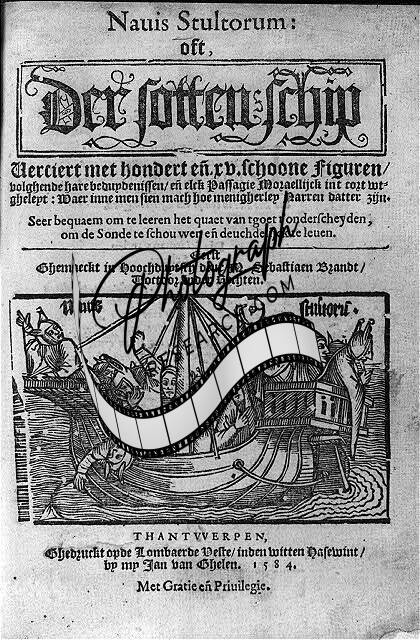 Nauis Stultorum:
oft,
Der sotten schip
Verciert met hondert eñ. xv. schoone Figuren/
volghende hare beduydenissen/ eñ elck Passagie Moraellijck int cort wt-
gheleyt: Waer inne men sien mach hoe menigherley Narren datter zijn.
Seer bequaem om te leeren het quaet van tgoet t'onderscheyden,
om de Sonde te schouwen/ eñ deuchdelijck te leuen.
Eerst
Ghemaeckt in Hoochduytsch Sebastiaen Brandt/
Doctoor Rechten.
Nauis stultorū.
Photograph
RESEARCH.COM
THANTVVERPEN,
Ghedruckt opde Lombaerde Veste/ inden witten Hasewint/
by my Jan van Ghelen. 1584.
Met Gratie eñ Priuilegie.